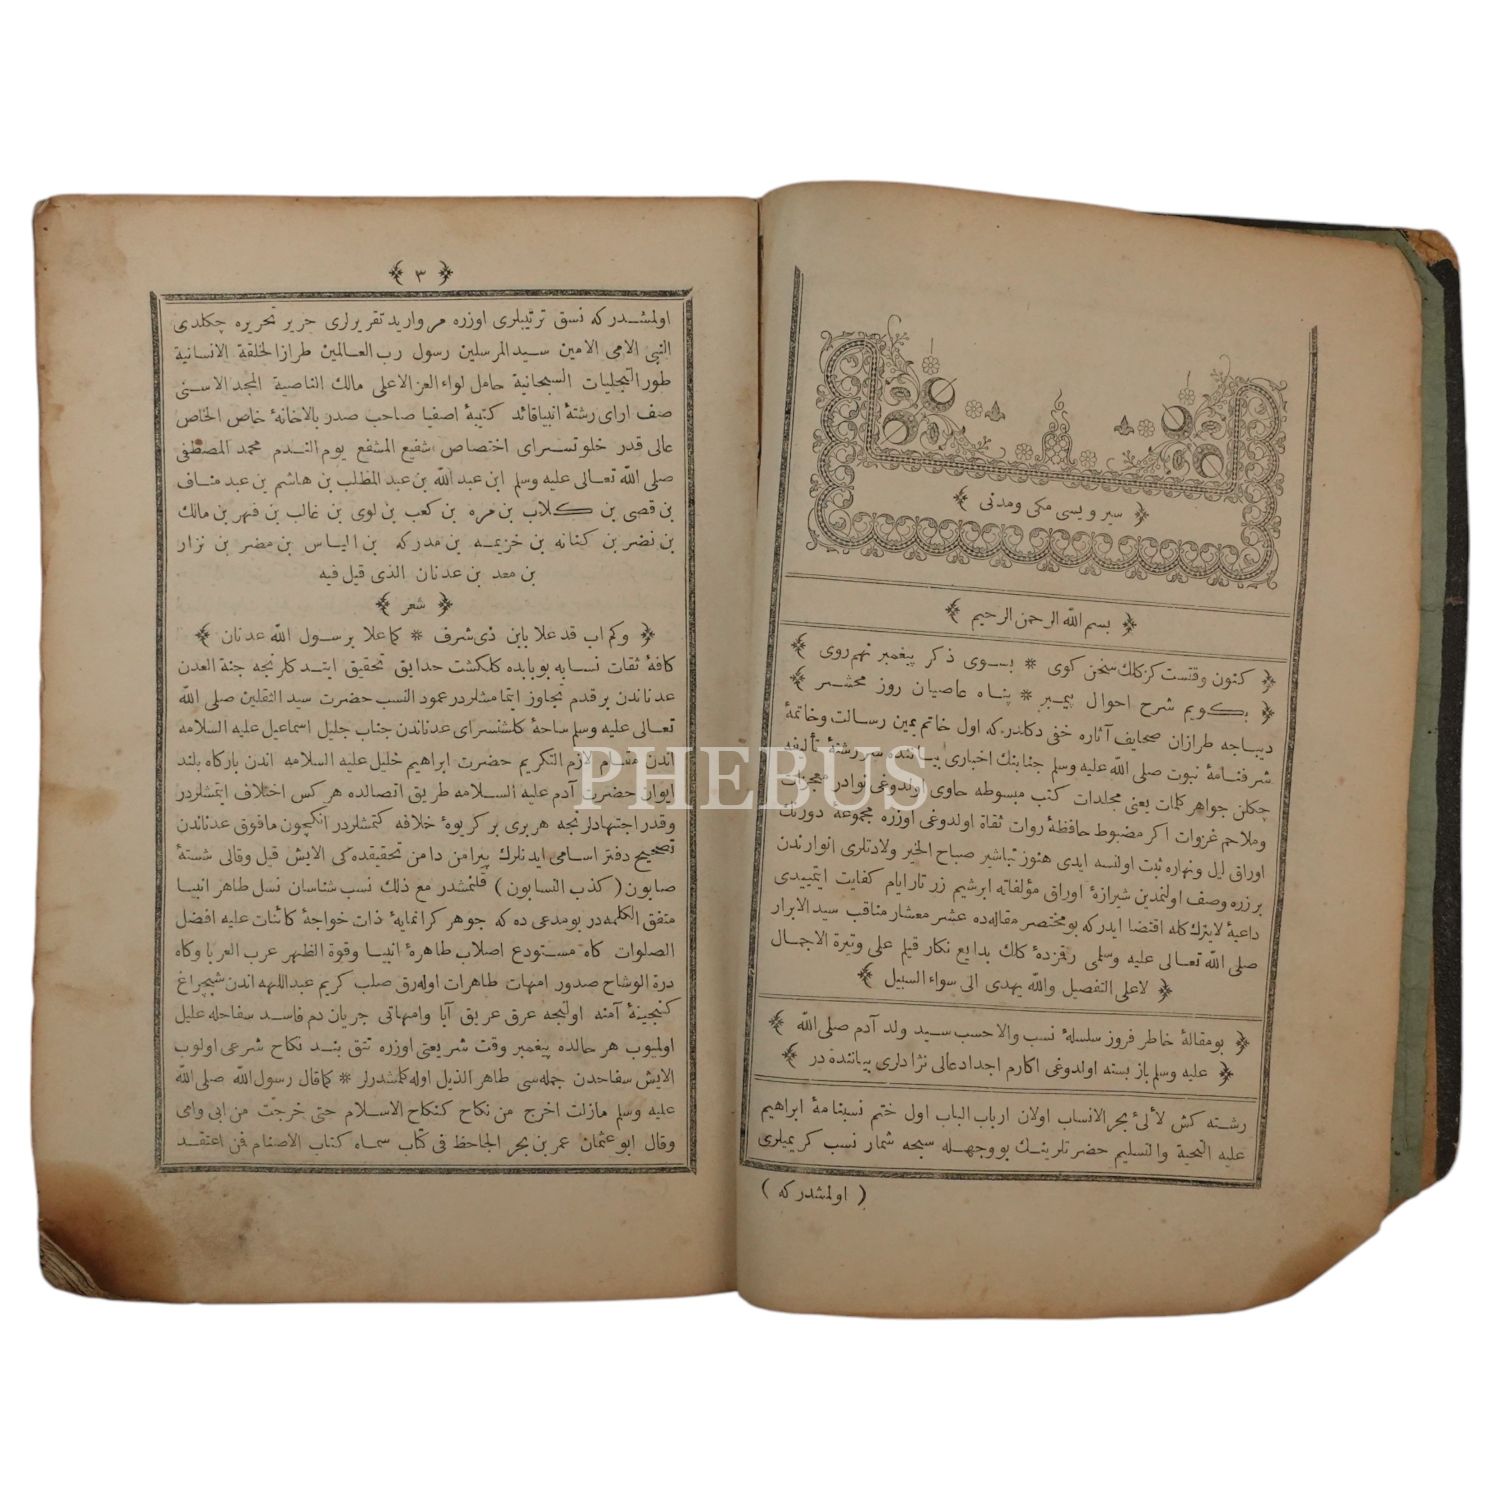 ﴿ سير ويسى مكى ومدنى ﴾
﴿ بسم الله الرحمن الرحيم ﴾
﴿ كنون وقتست كز كلك سخن كوى * بسوى ذكر پيغمبر نهم روى ﴾
﴿ بكويم شرح احوال پيمبر * پناه عاصيان روز محشر ﴾
ديباجه طرازان صحايف آثاره خفى دكلدركه اول خاتم يمين رسالت وخاتمۀ
شرفنامۀ نبوت صلى الله عليه وسلم جنابنك اخبارى بياننده سررشتۀ تأليفه
چكلن جواهر كلمات يعنى مجلدات كتب مبسوطه حاوى اولدوغى نوادر معجزات
وملاحم غزوات اكر مضبوط حافظۀ روات ثقاة اولدوغى اوزره مجموعۀ دورنك
اوراق ليل ونهاره ثبت اولنسه ايدى هنوز تباشير صباح الخير ولادتلرى انوارندن
بر زره وصف اولنمدين شيرازۀ اوراق مؤلفاته ابرشيم زرتار ايام كفايت ايتميدى
داعيۀ لايترك كله اقتضا ايدركه بو مختصر مقاله ده عشر معشار مناقب سيد الابرار
صلى الله تعالى عليه وسلمى رقمزدۀ كلك بدايع نكار قيلم على وتيرة الاجمال
لاعلى التفصيل والله يهدى الى سواء السبيل ﴾
﴿ بو مقالۀ خاطر فروز سلسلۀ نسب والاحسب سيد ولد آدم صلى الله ﴾
﴿ عليه وسلم باز بسته اولدوغى اكارم اجداد عالى نژادلرى بياننده در ﴾
رشته كش لآلئ بحر الانساب اولان ارباب الباب اول ختم نسبنامۀ ابراهيم
عليه التحية والتسليم حضرتلرينك بووجهله سبحه شمار نسب كريميلرى
( اولمشدر كه )
﴿ ٣ ﴾
اولمشدر كه نسق ترتيبلرى اوزره مرواريد تقريرلرى حرير تحريره چكلدى
النبى الامى الامين سيد المرسلين رسول رب العالمين طراز الخلقة الانسانية
طور التجليات السبحانية حامل لواء العز الاعلى مالك الناصية المجد الاسنى
صف اراى رشتۀ انبيا قائد كتيبۀ اصفيا صاحب صدر بالاخانۀ خاص الخاص
عالى قدر خلوتسراى اختصاص شفيع المشفع يوم الندم محمد المصطفى
صلى الله تعالى عليه وسلم ابن عبد الله بن عبد المطلب بن هاشم بن عبد مناف
بن قصى بن كلاب بن مره بن كعب بن لوى بن غالب بن فهر بن مالك
بن نضر بن كنانه بن خزيمه بن مدركه بن الياس بن مضر بن نزار
بن معد بن عدنان الذى قيل فيه
﴿ شعر ﴾
﴿ وكم اب قد علا بابن ذى شرف * كما علا برسول الله عدنان ﴾
كافۀ ثقات نسابه بو بابده كلكشت حدايق تحقيق ابتد كلرنجه جنة العدن
عدناندن بر قدم تجاوز ايتمامشلردر عمود النسب حضرت سيد الثقلين صلى الله
تعالى عليه وسلم ساحۀ كلشنسراى عدناندن جناب جليل اسماعيل عليه السلامه
اندن مقام لازم التكريم حضرت ابراهيم خليل عليه السلامه اندن باركاه بلند
ايوان حضرت آدم عليه السلامه طريق اتصالده هر كس اختلاف ايتمشلردر
وقدر اجتهادلرنجه هر برى بر كريوۀ خلافه كتمشلردر انكچون مافوق عدناندن
تصحيح دفتر اسامى ايدنلرك پيرامن دامن تحقيقده كى الايش قيل وقالى شستۀ
صابون ( كذب النسابون ) قلنمشدر مع ذلك نسب شناسان نسل طاهر انبيا
متفق الكلمه در بو مدعى ده كه جوهر كرانمايۀ ذات خواجۀ كائنات عليه افضل
الصلوات كاه مستودع اصلاب طاهرۀ انبيا وقوة الظهر عرب العربا وكاه
درة الوشاح صدور امهات طاهرات اوله رق صلب كريم عبداللهه اندن شبچراغ
كنجينۀ آمنه اولنجه عرق عريق آبا وامهاتى جريان دم فاسد سفاحله عليل
اولميوب هر حالده پيغمبر وقت شريعتى اوزره تتق بند نكاح شرعى اولوب
الايش سفاحدن جمله سى طاهر الذيل اوله كلمشدرلر * كما قال رسول الله صلى الله
عليه وسلم مازلت اخرج من نكاح كنكاح الاسلام حتى خرجت من ابى وامى
وقال ابو عثمان عمر بن بحر الجاحظ فى كتاب سماه كتاب الاصنام فمن اعتقد
PHEBUS